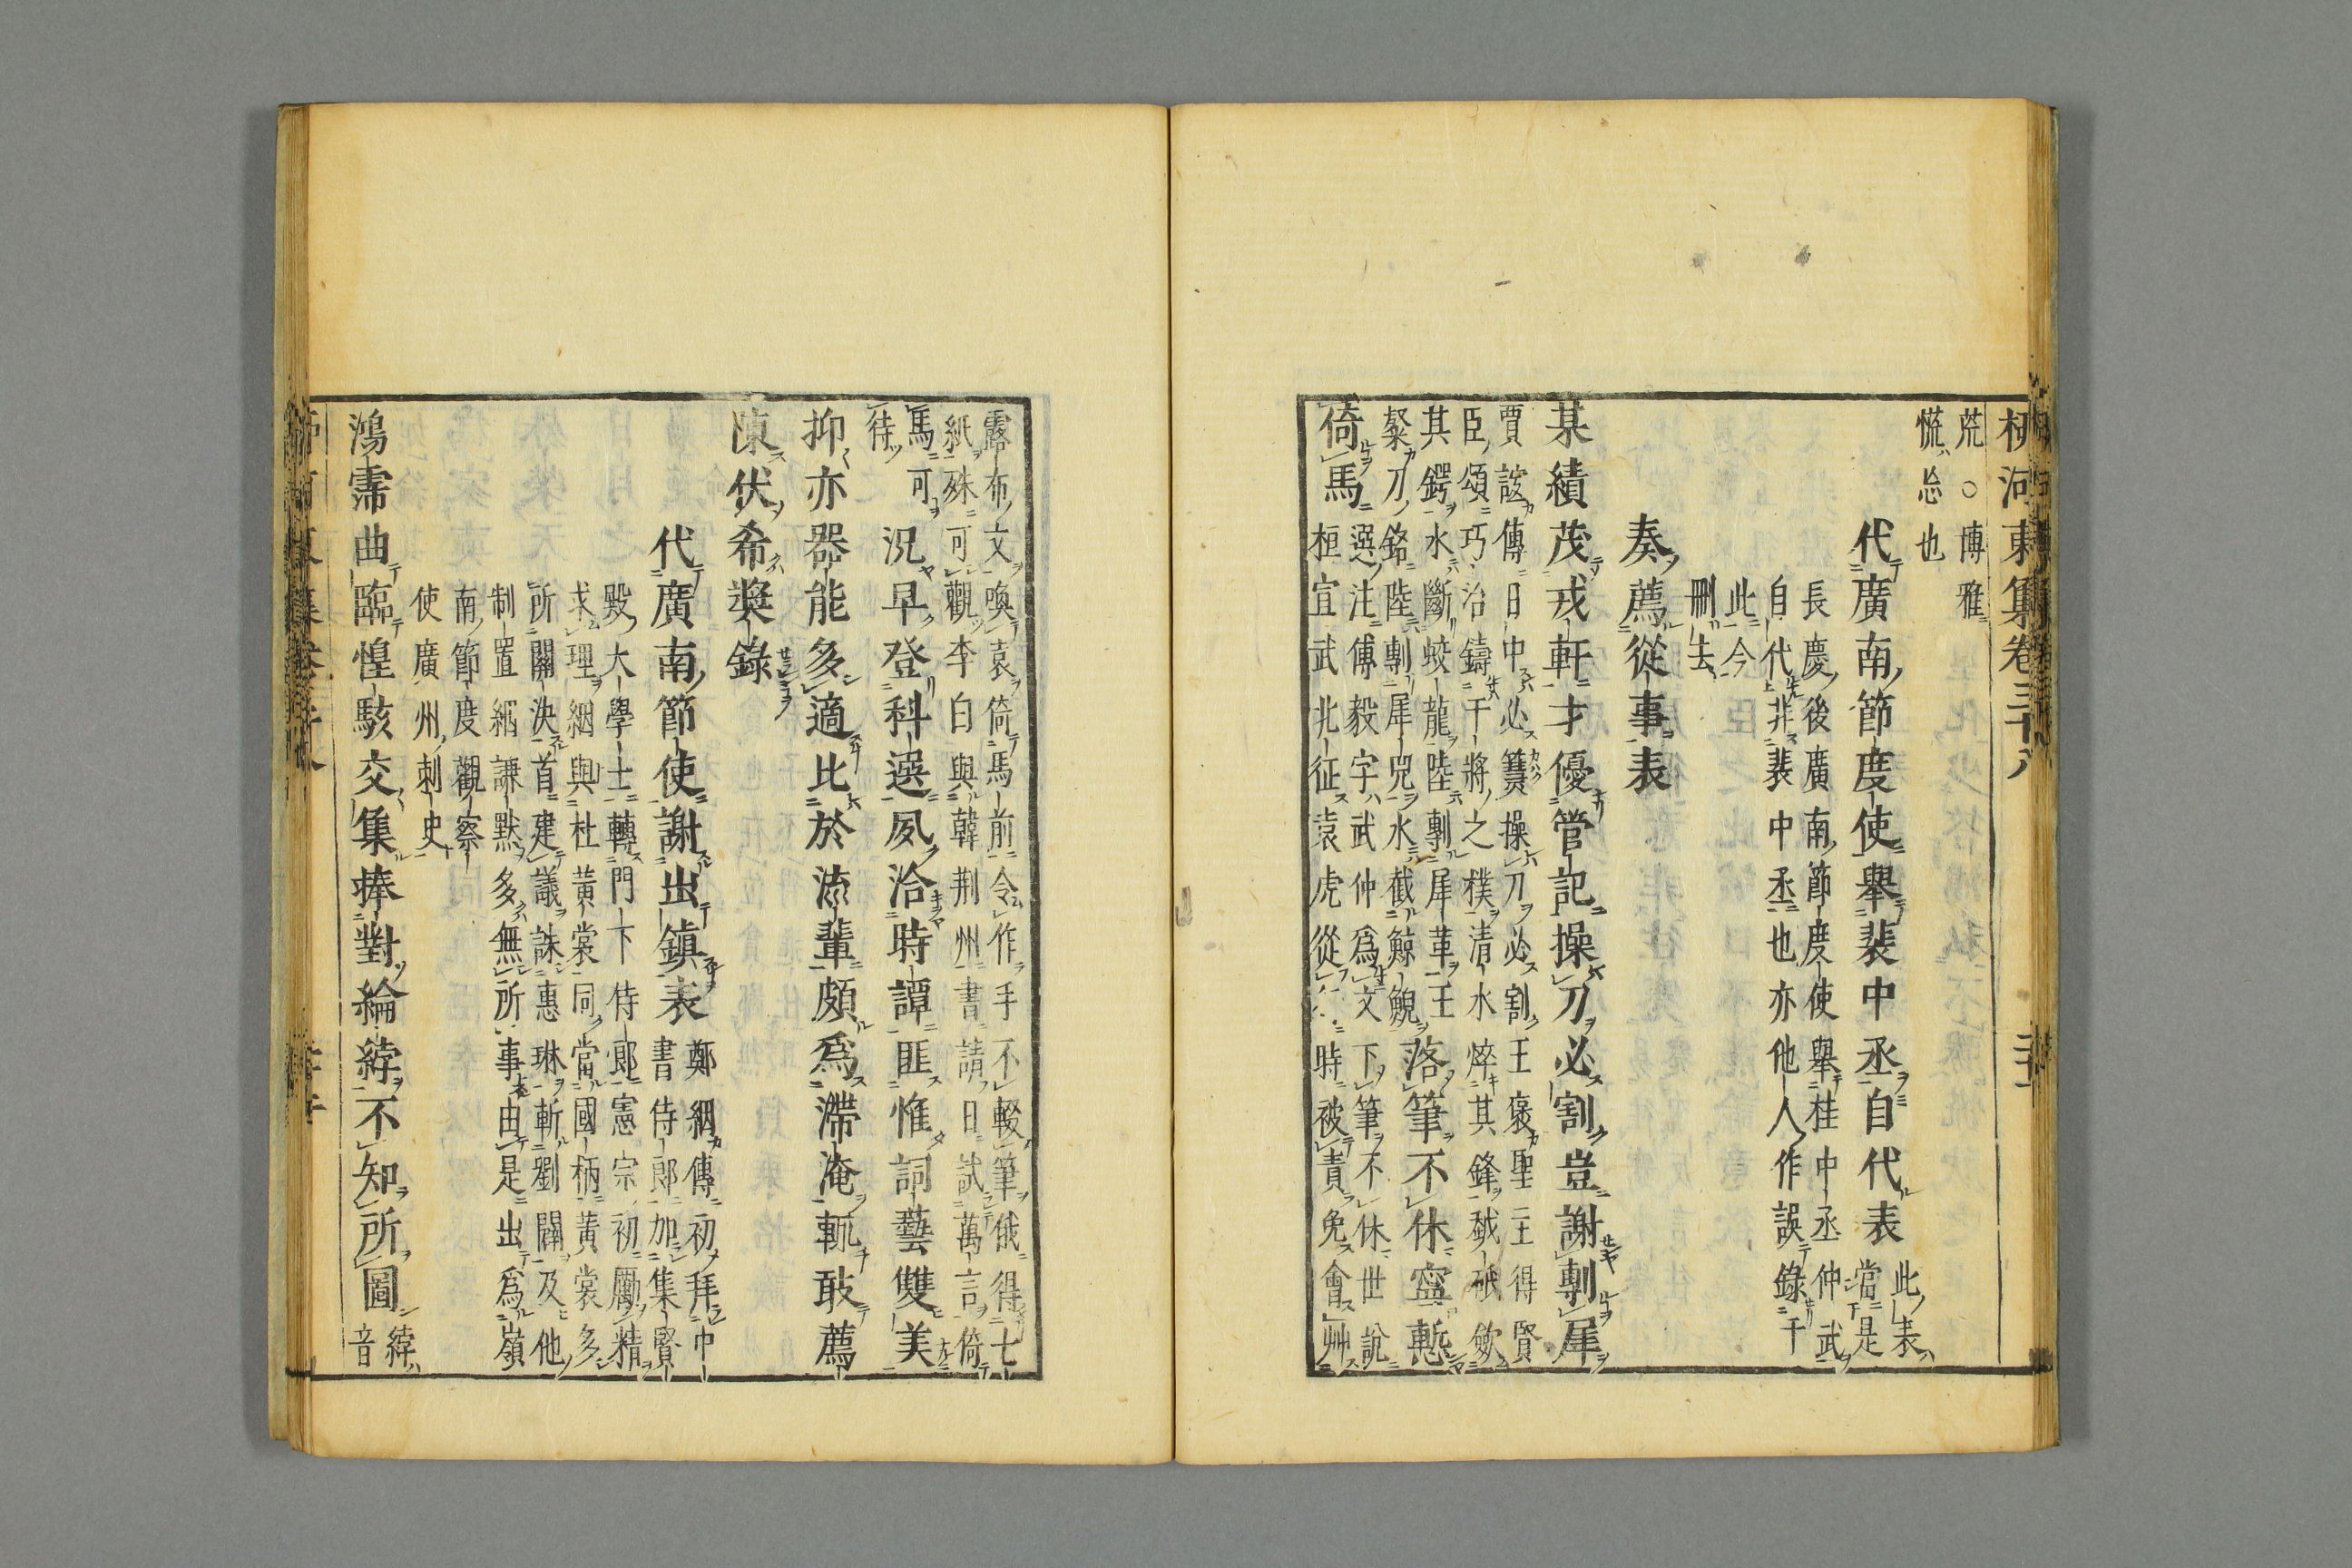 柳河東集卷三十八
荒○博雅
慌忽也
代廣南節度使舉裴中丞自代表
此表
當是
長慶後廣南節度使舉桂中丞仲武
自代非裴中丞也亦他人作誤錄于
此今
刪去
奏薦從事表
某績茂戎軒才優管記操刀必割豈謝剸犀
賈誼傳曰中必䔾操刀必割王襃聖主得賢
臣頌巧冶鑄干將之樸清水焠其鋒越砥斂
其鍔水斷蛟龍陸剸犀革王
粲刀銘陸剸犀兕水截鯨鯢
落筆不休寧慙
選注傅毅字武仲為文下筆不休世說
桓宣武北征袁虎從時被責免會艸
倚馬
露布文喚袁倚馬前令作手不輟筆俄得七
紙殊可觀李白與韓荊州書請日試萬言倚
馬可
待
況早登科選夙洽時譚匪惟詞藝雙美
抑亦器能多適比於流輩頗為滯淹輒敢薦
陳伏希獎錄
代廣南節使謝出鎮表
鄭絪傳初拜中
書侍郎加集賢
殿大學士轉門下侍郎憲宗初勵精
求理絪與杜黃裳同當國柄黃裳多
所關決首建議誅惠琳斬劉闢及他
制置絪謙默多無所事由是出為嶺
南節度觀察
使廣州刺史
鴻霈曲臨惶駭交集捧對綸綍不知所圖
綍
音